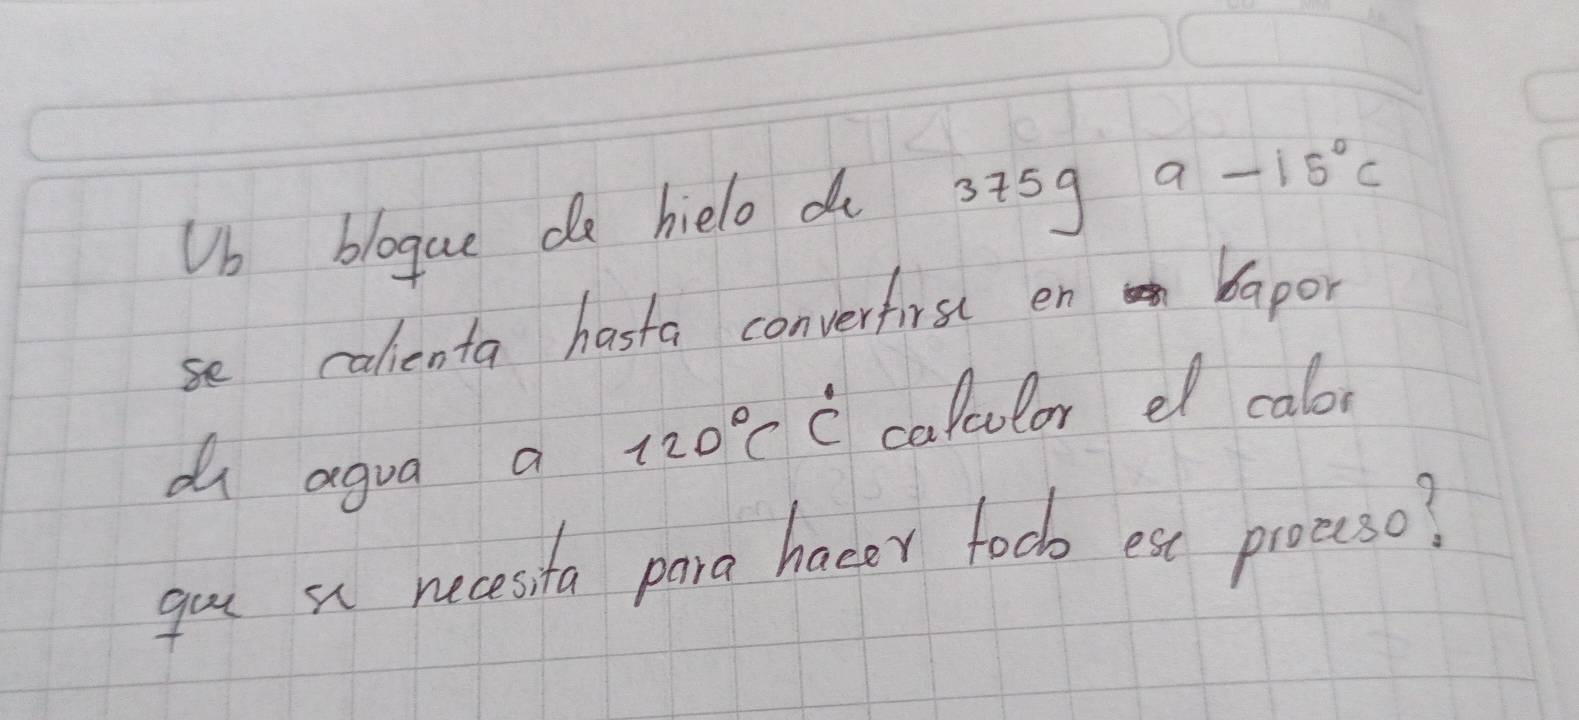 Ub bloque de hielo de 375g a -15°c
se calienta hasta convertirse en vapor
de agua a 120°C ¿ calcular el calor
que se necesita para hacer todo ese proceso?